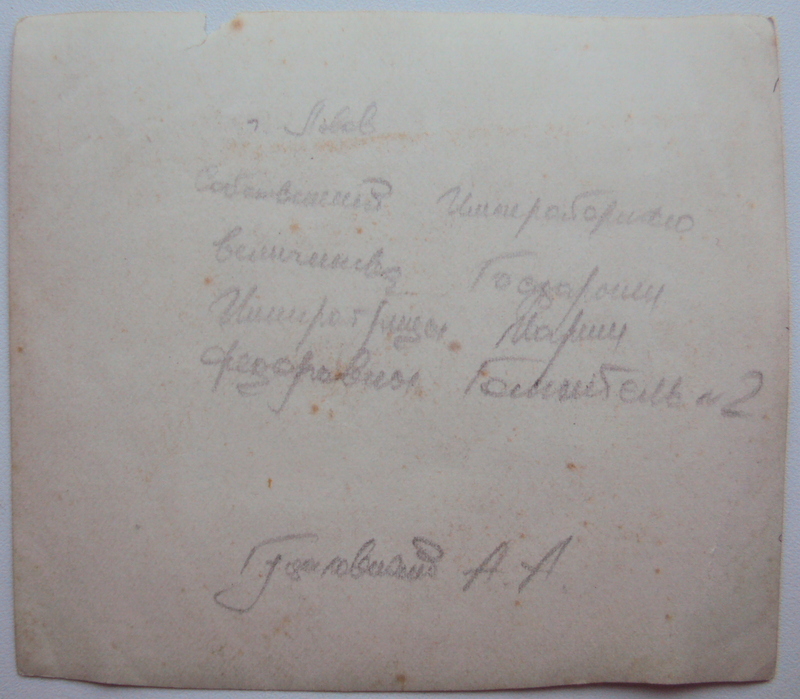 г. Львов
Собственный Императорского
величества Государыни
Императрицы Марии
Федоровны Госпиталь №2
А. А.